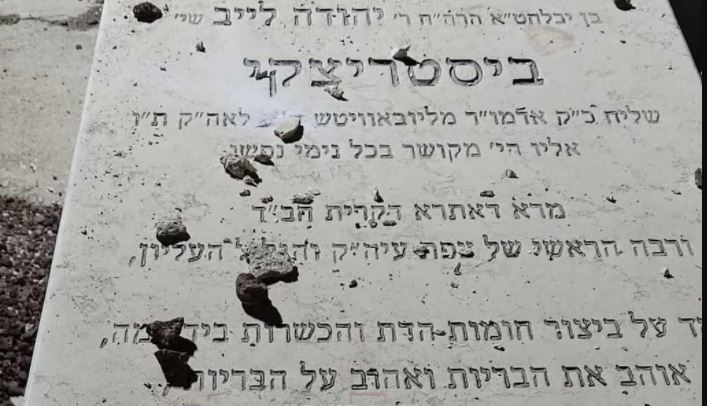 בן יבלחט״א הרה״ח ר׳ יהודה לייב שי׳
ביסטריצקי
שליח כ״ק אדמו״ר מליובאוויטש לאה״ק ת״ו
אליו הי׳ מקושר בכל נימי נפשו
מרא דאתרא דקרית חב״ד
ורבה הראשי של צפת עיה״ק והגליל העליון,
על ביצור חומות הדת והכשרות ביד
אוהב את הבריות ואהוב על הבריות